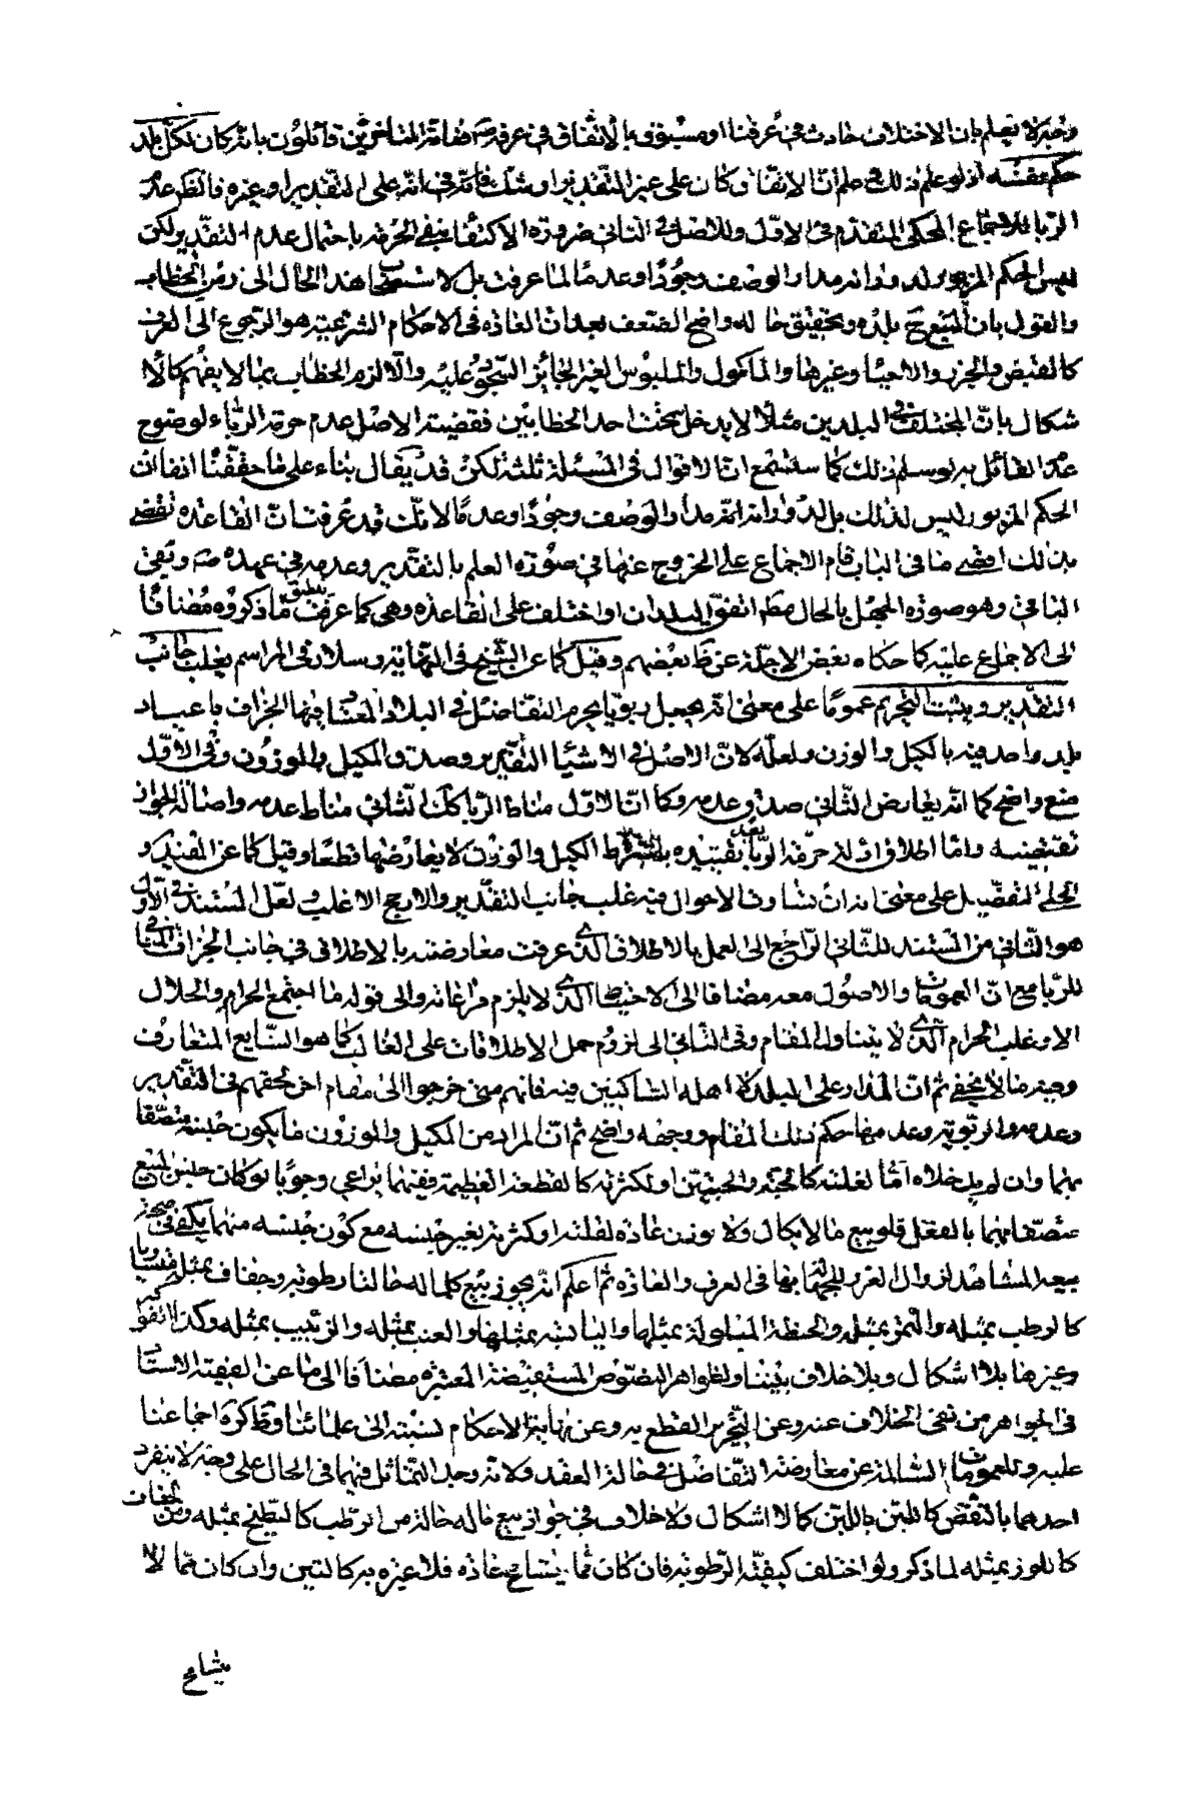 وخبرة يعلم بان الاختلاف حادث في عرفنا او مسبوق بالاتفاق في عرفه ص فعامة المتاخرين قائلون بانه كان لكل بلد
حكم نفسه اذ لو علم ذلك علم ان الاتفاق كان على غير التقدير او شك فانه في انه على التقدير او غيره فالظ عدم
الربا للاجماع المحكى المتقدم في الاول وللاصل في الثاني ضرورة الاكتفاء بنفي الحرمة باحتمال عدم التقدير لكن
ليس الحكم المزبور له دورانه مدار الوصف وجودًا وعدمًا لما عرفت بل لاستصحاب هذا الحال الى زمن الخطاب
والقول بان المتبوع بلده وتحقيق حاله واضح الضعف بعد ان العادة في الاحكام الشرعية هو الرجوع الى العرف
كالقبض والحرز والاحياء وغيرها والماكول والملبوس لغير الجائز السجود عليه والا لزم الخطاب بما لا يفهم كالا
شكال بان المختلف في البلدين مثلا لا يدخل تحت احد الخطابين فقضية الاصل عدم حرمة الرباء لوضوح
عدم القائل به لو سلم ذلك كما ستسمع ان الاقوال في المسئلة ثلثة لكن قد يقال بناء على ما حققنا انفا ان
الحكم المزبور ليس لذلك بل لدورانه مدار الوصف وجودًا وعدمًا لانك قد عرفت ان القاعدة تقتضي
من ذلك اقصى ما في الباب قام الاجماع على الخروج عنها في صورة العلم بالتقدير وعدمه في عهده ص وبقى
الباقي وهو صورة الجهل بالحال مط اتفق البلدان او اختلف على القاعدة وهي كما عرفت تطبق ما ذكروه مضافًا
الى الاجماع عليه كما حكاه بعض الاجلة عن بعضهم وقيل كما عن الشيخ في النهاية وسلار في المراسم يغلب جانب
التقدير ويثبت التحريم عمومًا على معنى انه يجعل ربويا يحرم التفاضل في البلاد المعتاد فيها الجزاف باعتياد
بلد واحد فيه بالكيل والوزن ولعله لان الاصل في الاشياء التقدير وصدق المكيل والموزون وفي الاول
منع واضح كما انه يعارض الثاني صدق عدمه وكما ان الاول مناط الربا كك الثاني مناط عدمه واصالة الجواز
تقتضيه واما اطلاق ادلة حرمة الربا بعد تقييده باشتراط الكيل والوزن لا يعارضها قطعًا وقيل كما عن المفيد و
الحلي التفصيل على معنى انه ان تساوت الاحوال فيه غلب جانب التقدير والا رجح الاغلب ولعل المستند في الاول
هو الثاني من المستند للثاني الراجع الى العمل بالاطلاق الذي عرفت معارضته بالاطلاق في جانب الجزاف النافي
للربا مع ان العمومات والاصول معه مضافا الى الاحتياط الذي لا يلزم مراعاته والى قوله ما اجتمع الحرام والحلال
الا وغلب الحرام الذي لا يتناول المقام وفي الثاني الى لزوم حمل الاطلاقات على الغالب كما هو الشايع المتعارف
وفيه ما لا يخفى ثم ان المدار على البلد لا اهله الساكنين فيه فانهم متى خرجوا الى مقام اخر لحقهم في التقدير
وعدمه والربوية وعدمها حكم ذلك المقام ووجهه واضح ثم ان المراد من المكيل والموزون ما يكون جنسه متصفا
بهما وان لم يدخلاه اما لقلته كالحبة والحبتين او لكثرته كالقطعة العظيمة ففيهما يراعى وجوبًا لو كان جنس المبيع
متصفا بهما بالفعل فلو بيع ما لا يكال ولا يوزن عادة لقلته او كثرته بغير جنسه مع كون جنسه منهما يكفي في صحة
بيعه المشاهدة لزوال الغرر للجهالة بها في العرف والعادة ثم اعلم انه يجوز بيع كلما له حالتا رطوبة وجفاف بمثله متساويا
كالرطب بمثله والتمر بمثله والحنطة المبلولة بمثلها واليابسة بمثلها والعنب بمثله والزبيب بمثله وكذا الفواكه
وغيرها بلا اشكال وبلا خلاف بيننا ولظواهر النصوص المستفيضة المعتبرة مضافًا الى ما عن الغنية الاستاد
في الجواهر من نفي الخلاف عنه وعن التحرير القطع به وعن نهاية الاحكام نسبته الى علمائنا وظ كره اجماعنا
عليه وللعمومات السالمة عن معارضة التفاضل في حالة العقد ولانه وجد التماثل فيهما في الحال على وجه لا ينفرد
احدهما بالنقص كاللبن باللبن كما لا اشكال ولا خلاف في جواز بيع ما له حالة من الرطب كالبطيخ بمثله ومن الجفاف
كاللوز بمثله لما ذكر ولو اختلف كيفية الرطوبة فان كان مما يتسامح عادة فلا عبرة به كاللبن وان كان مما لا
يتسامح